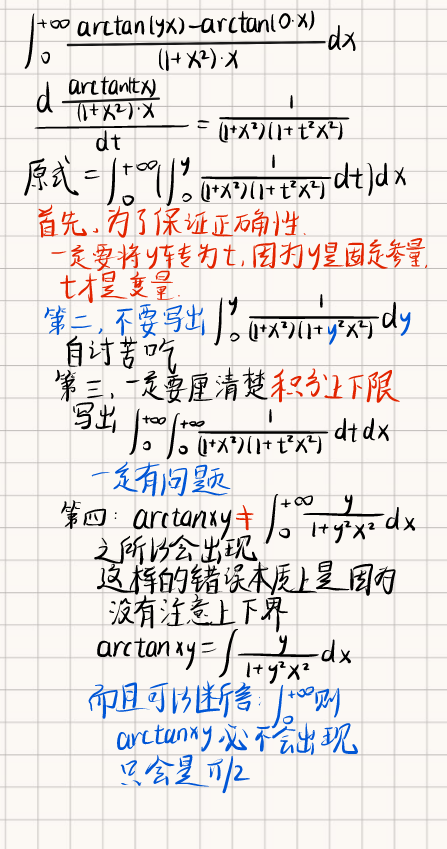 ∫₀^{+∞} (arctan(yx)-arctan(0·x))/((1+x²)·x) dx
d (arctan(tx)/((1+x²)·x))/dt = 1/((1+x²)(1+t²x²))
原式=∫₀^{+∞}(∫₀^y 1/((1+x²)(1+t²x²)) dt)dx
首先、为了保证正确性.
一定要将y转为t,因为y是固定参量,
t才是变量.
第二,不要写出∫₀^y 1/((1+x²)(1+y²x²)) dy
自讨苦吃
第三,一定要厘清楚积分上下限
写出∫₀^{+∞}∫₀^{+∞} 1/((1+x²)(1+t²x²)) dt dx
一定有问题
第四: arctanxy≠∫₀^{+∞} y/(1+y²x²) dx
之所以会出现
这样的错误本质上是因为
没有注意上下界
arctanxy=∫ y/(1+y²x²) dx
而且可以断言:∫₀^{+∞}则
arctanxy必不会出现
只会是π/2